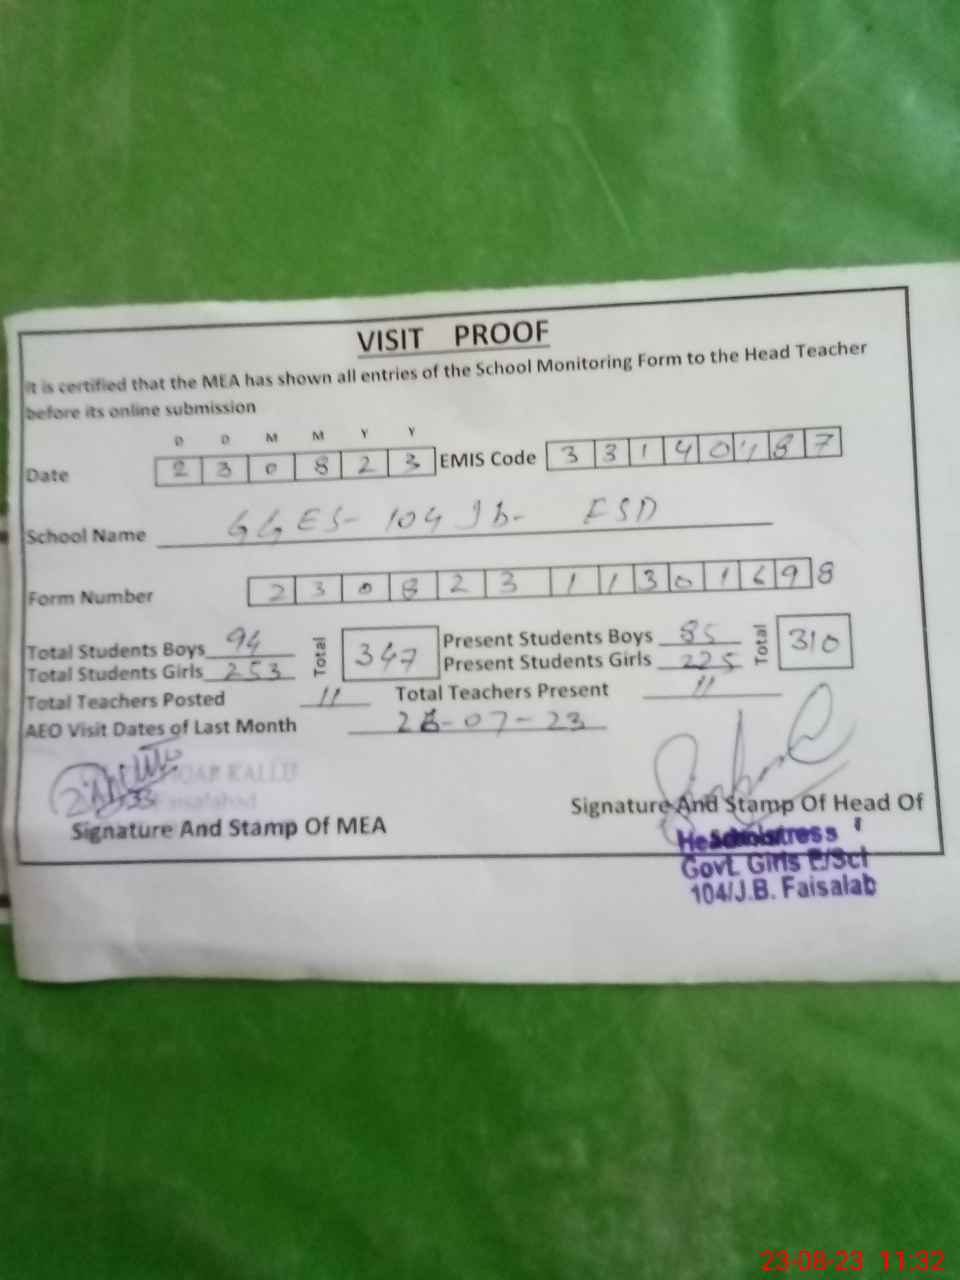 VISIT PROOF
It is certified that the MEA has shown all entries of the School Monitoring Form to the Head Teacher
before its online submission
D D M M Y Y
Date 2 3 0 8 2 3 EMIS Code 3 3 1 4 0 1 8 7
School Name GGES- 104 Jb- FSD
Form Number 2 3 0 8 2 3 1 1 3 0 1 6 9 8
Total Students Boys 94 Total 347 Present Students Boys 85 Total 310
Total Students Girls 253 Present Students Girls 225
Total Teachers Posted 11 Total Teachers Present 11
AEO Visit Dates of Last Month -07-23
Signature And Stamp Of MEA
Signature And Stamp Of Head Of
Govt. Girls E/Scl
104/J.B. Faisalab
23-08-23 11:32